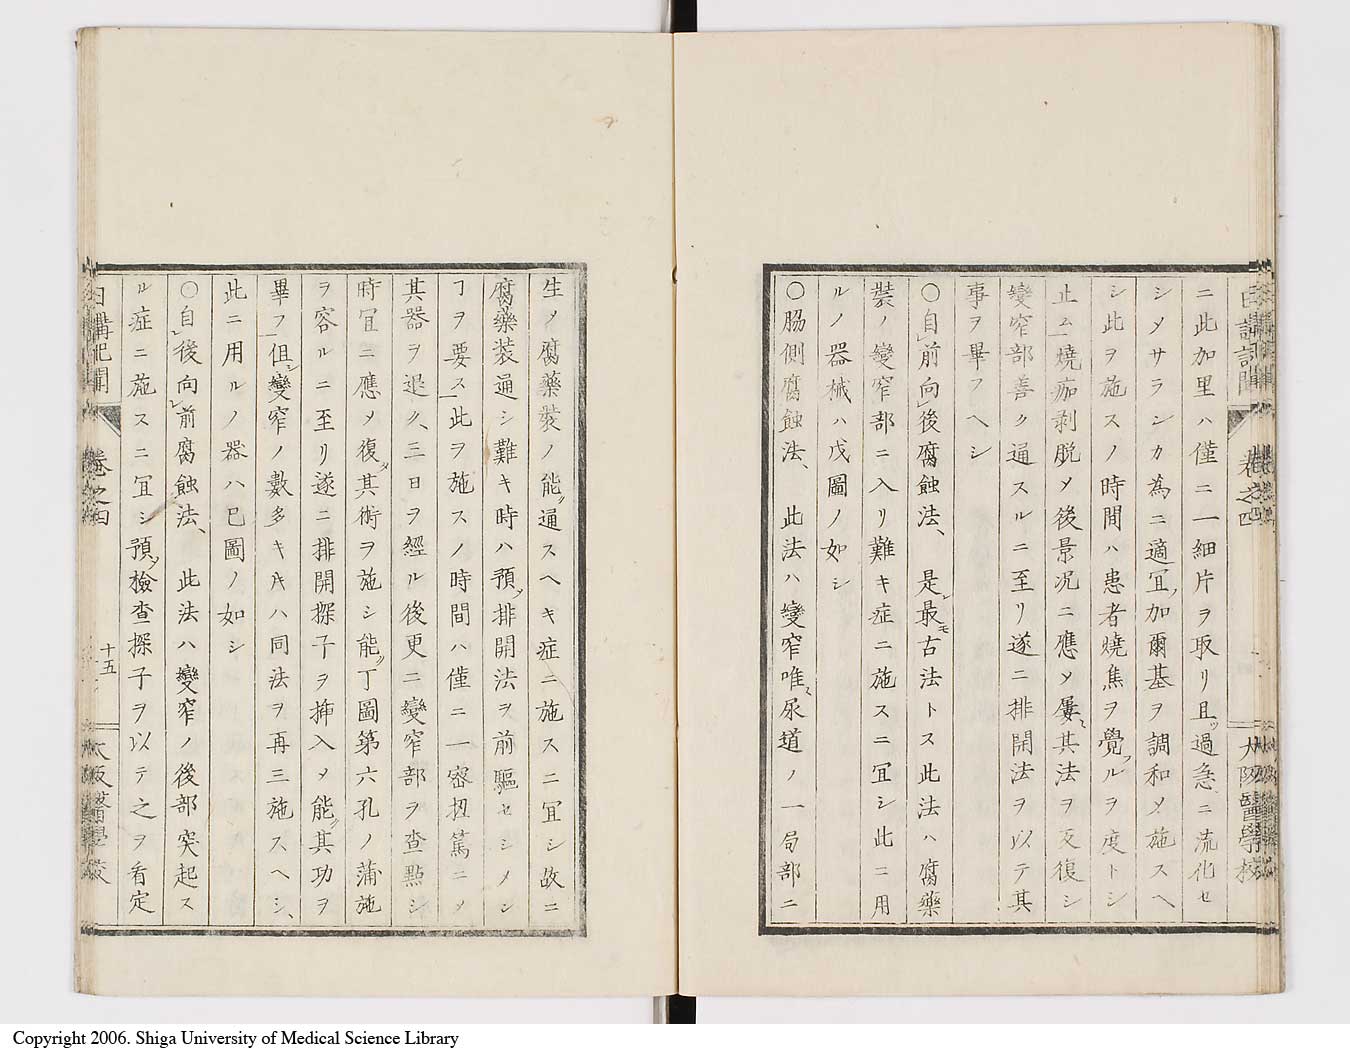 ニ此加里ハ僅ニ一細片ヲ取リ且ッ過急ニ流化セ
シメサランカ為ニ適冝ノ加爾基ヲ調和メ施スヘ
シ此ヲ施スノ時間ハ患者燒焦ヲ覺フルヲ度トシ
止ム燒痂剥脱メ後景况ニ應メ屢〻其法ヲ反復シ
變窄部善ク通スルニ至リ遂ニ排開法ヲ以テ其
事ヲ畢フヘシ
〇自前向後腐蝕法、是レ最モ古法トス此法ハ腐藥
装ノ變窄部ニ入リ難キ症ニ施スニ冝シ此ニ用
ルノ器械ハ戊圖ノ如シ
〇脇側腐蝕法、此法ハ變窄唯〻尿道ノ一局部ニ
日講記聞 卷之四 大阪醫學校
生メ腐藥装ノ能ク通スヘキ症ニ施スニ冝シ故ニ
腐藥装通シ難キ時ハ預メ排開法ヲ前驅セシメン
ヿヲ要ス此ヲ施スノ時間ハ僅ニ一密扭篤ニメ
其器ヲ退ク、三日ヲ經ル後更ニ變窄部ヲ查點シ
時冝ニ應メ復タ其術ヲ施シ能ク丁圖第六孔ノ蒲施
ヲ容ルニ至リ遂ニ排開探子ヲ挿入メ能ク其功ヲ
畢フ但シ變窄ノ數多キ𪜈ハ同法ヲ再三施スヘシ、
此ニ用ルノ器ハ已圖ノ如シ
〇自後向前腐蝕法、此法ハ變窄ノ後部突起ス
ル症ニ施スニ冝シ預メ檢查探子ヲ以テ之ヲ看定
日講記聞 卷之四 十五 大阪醫學校
Copyright 2006. Shiga University of Medical Science Library